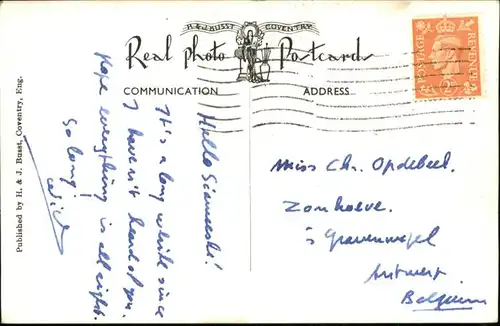 H. & J. BUSST COVENTRY
Real photo Postcards
COMMUNICATION
ADDRESS
POSTAGE REVENUE
Published by H. & J. Busst, Coventry, Eng.
Hello
It's a long while since
I haven't heard of you.
Hope everything is all right.
So long
Miss Chr. Opdebeeck
Zonhoeve.
's Gravenwezel
Antwerp.
Belgium